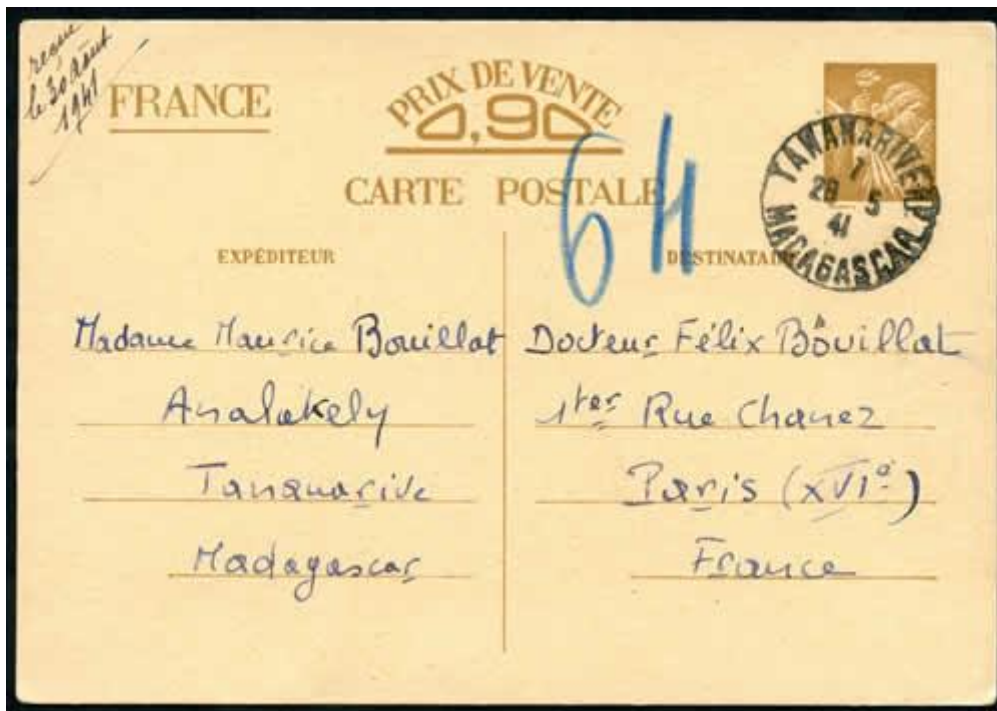 reçue
le 30 août
1941
FRANCE
PRIX DE VENTE
0,90
CARTE POSTALE
64
TANANARIVE R.P.
7
28 5
41
MADAGASCAR
EXPÉDITEUR
DESTINATAIRE
Madame Maurice Bouillat
Analakely
Tananarive
Madagascar
Docteur Félix Bouillat
1ter Rue Chanez
Paris (XVIe)
France